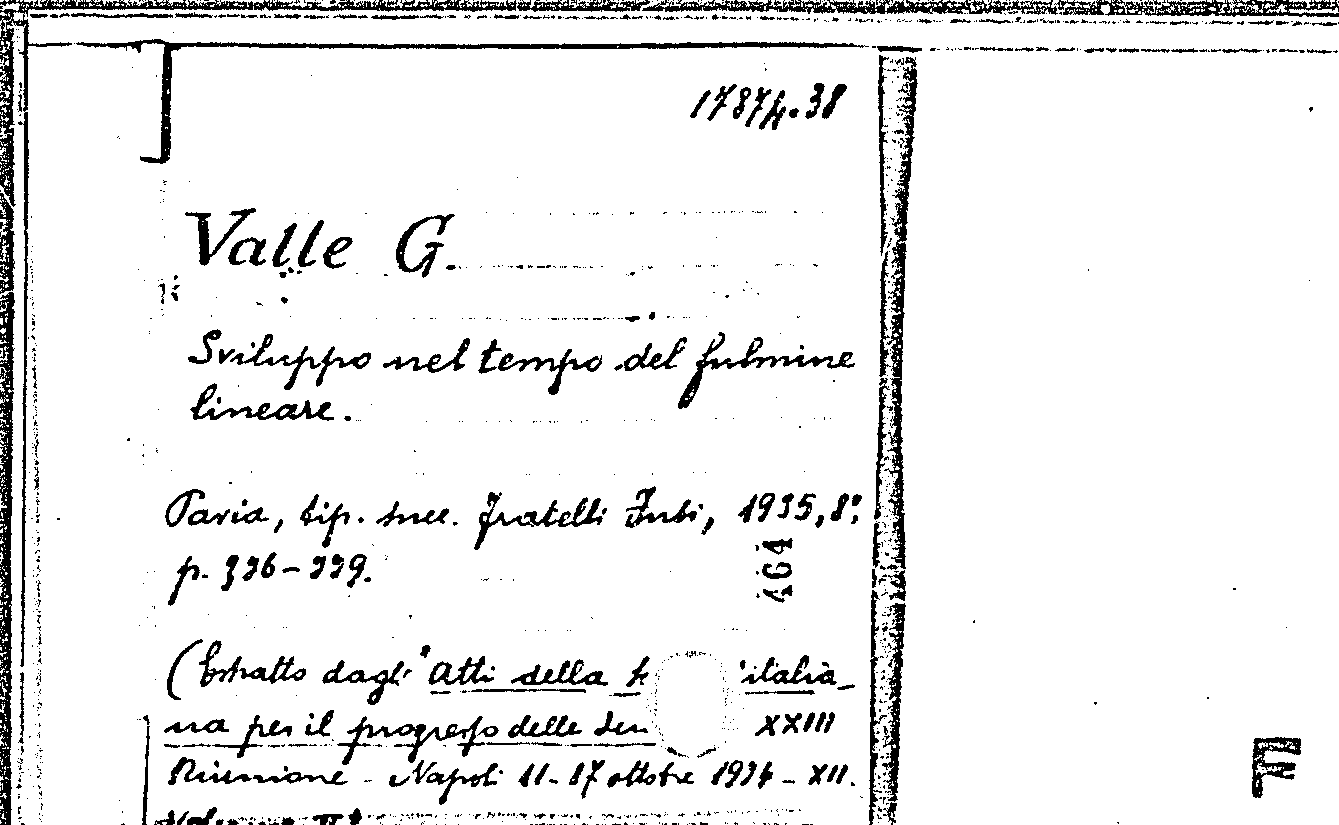 17874.38
Valle G.
Sviluppo nel tempo del fulmine
lineare.
Pavia, tip. succ. Fratelli Fusi, 1935, 8°,
p. 336-339.
464
(Estratto dagli "Atti della italia-
na per il progresso delle XXIII
Riunione - Napoli 11-17 ottobre 1934-XII.